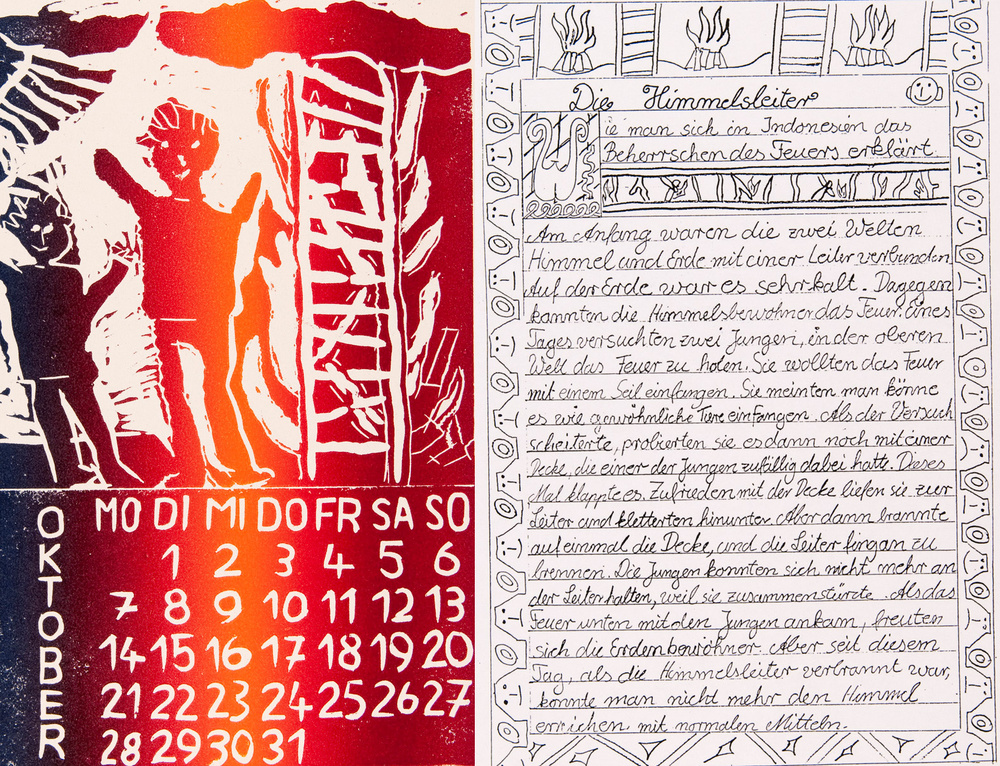 OKTOBER
MO DI MI DO FR SA SO
1 2 3 4 5 6
7 8 9 10 11 12 13
14 15 16 17 18 19 20
21 22 23 24 25 26 27
28 29 30 31
Die Himmelsleiter
Wie man sich in Indonesien das
Beherrschen des Feuers erklärt.
Am Anfang waren die zwei Welten
Himmel und Erde mit einer Leiter verbunden.
Auf der Erde war es sehr kalt. Dagegen
kannten die Himmelsbewohner das Feuer. Eines
Tages versuchten zwei Jungen, in der oberen
Welt das Feuer zu holen. Sie wollten das Feuer
mit einem Seil einfangen. Sie meinten man könne
es wie gewöhnliche Tiere einfangen. Als der Versuch
scheiterte, probierten sie es dann noch mit einer
Decke, die einer der Jungen zufällig dabei hatte. Dieses
Mal klappte es. Zufrieden mit der Decke liefen sie zur
Leiter und kletterten hinunter. Aber dann brannte
auf einmal die Decke, und die Leiter fing an zu
brennen. Die Jungen konnten sich nicht mehr an
der Leiter halten, weil sie zusammenstürzte. Als das
Feuer unten mit den Jungen ankam, freuten
sich die Erdenbewohner. Aber seit diesem
Tag, als die Himmelsleiter verbrannt war,
konnte man nicht mehr den Himmel
erreichen mit normalen Mitteln.